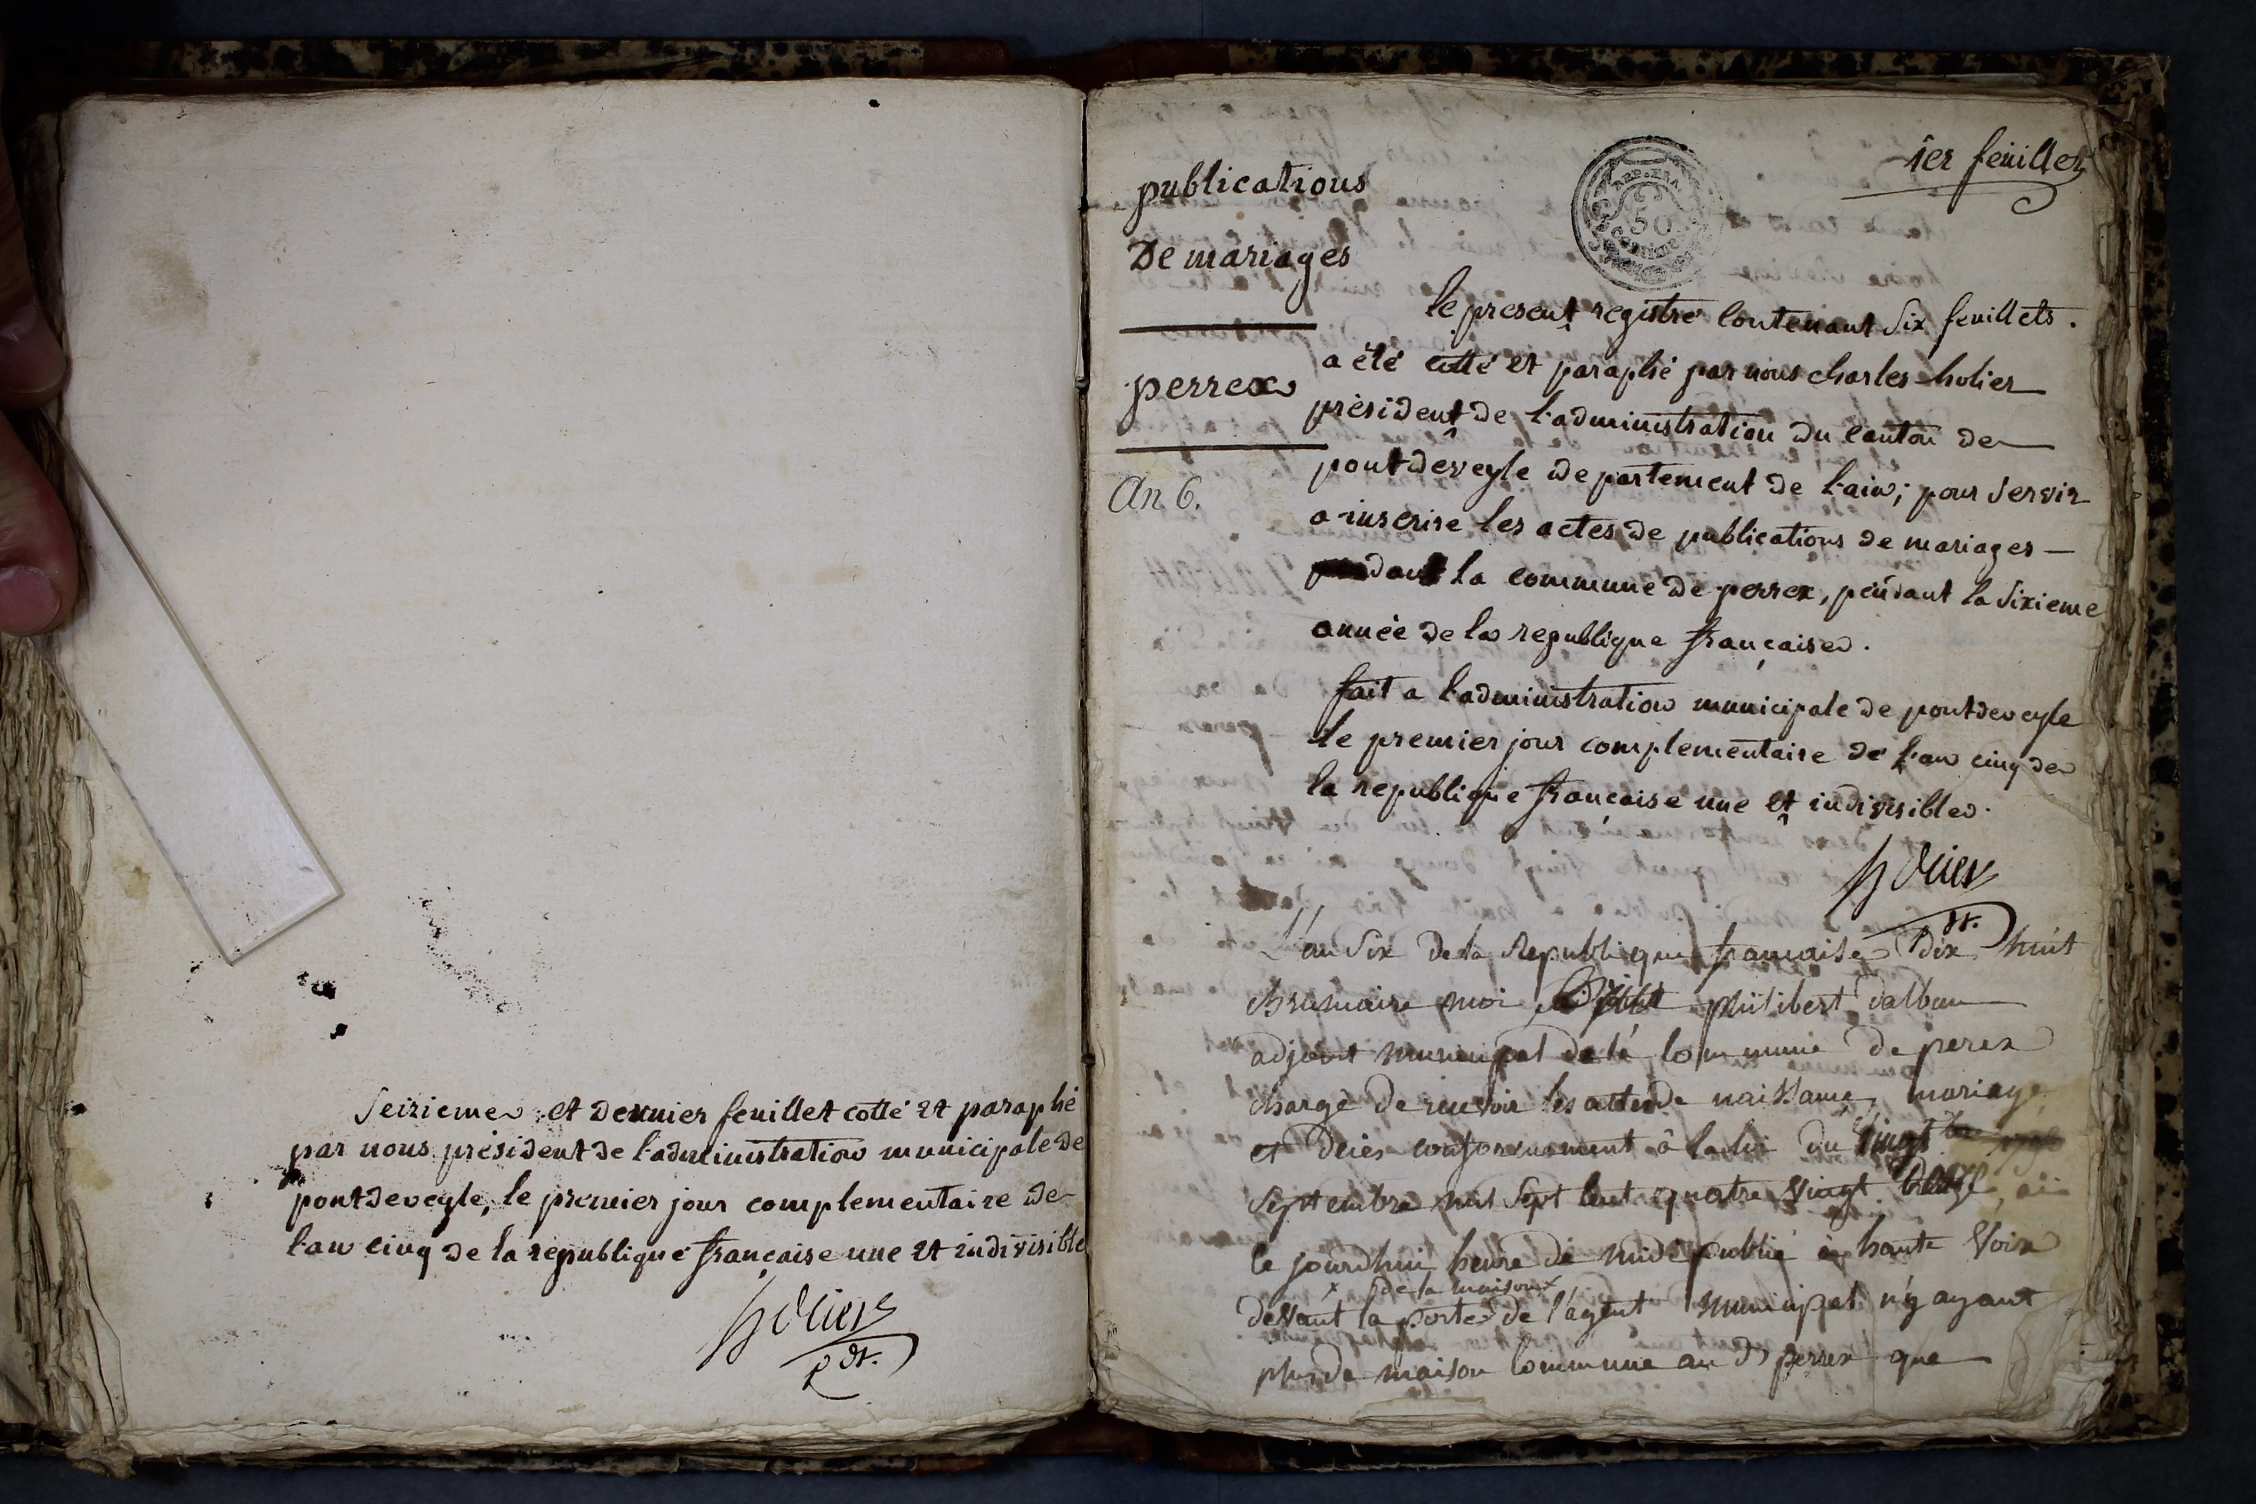 Seizieme et dernier feuillet cotté et paraphé
par nous président de l'administration municipale de
pontdeveyle, le premier jour complementaire de
l'an cinq de la republique française une et indivisible
holier
pdt.
1er feuillet
publications
De mariages
perrex
An 6.
RÉP. FRA.
50
le present registre contenant six feuillets.
a été cotté et paraphé par nous charles holier
président de l'administration du canton de
pontdeveyle departement de l'ain; pour servir
a inscrire les actes de publications de mariages
la commune de perrex, pendant la sixieme
année de la republique française.
fait a l'administration municipale de pontdeveyle
le premier jour complementaire de l'an cinq de
la republique française une et indivisible.
holier
pdt.
L'an six de la republique française dix huit
brumaire moi philibert dalban
adjoint municipal de la commune de perex
chargé de recevoir les actes de naissance, mariage
et décès conformement a la loi du vingt
septembre mil sept cent quatre vingt douze, ai
le jourdhui heure de midi publié a haute voix
x de la maison x
devant la porte de l'agent municipal n'y ayant
plus de maison commune au d perrex que